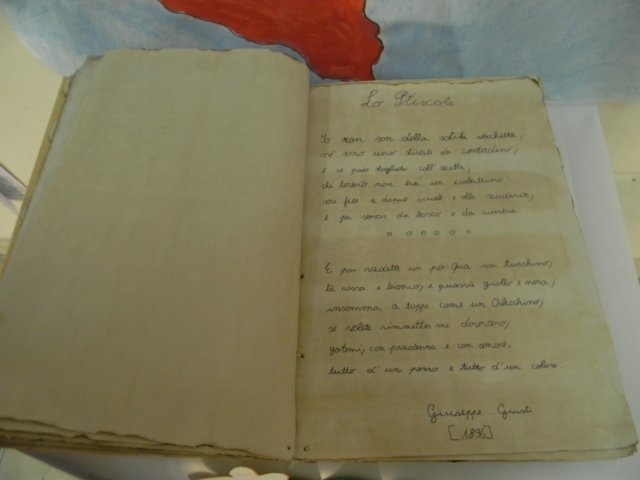 Lo Stivale
Io non son della solita vacchetta,
né sono uno stivale da contadino;
e se paio tagliato coll' accetta,
chi lavorò non era un ciabattino
mi fece a doppie suole e alla scudiera,
e per servir da bosco e da riviera
E poi vedete un po' qua son turchino,
là rosso e bianco, e quassù giallo e nero;
insomma a toppe come un Arlecchino;
se volete rimettermi davvero,
fatemi, con prudenza e con amore,
tutto d' un pezzo e tutto d' un colore.
Giuseppe Giusti
[1836]